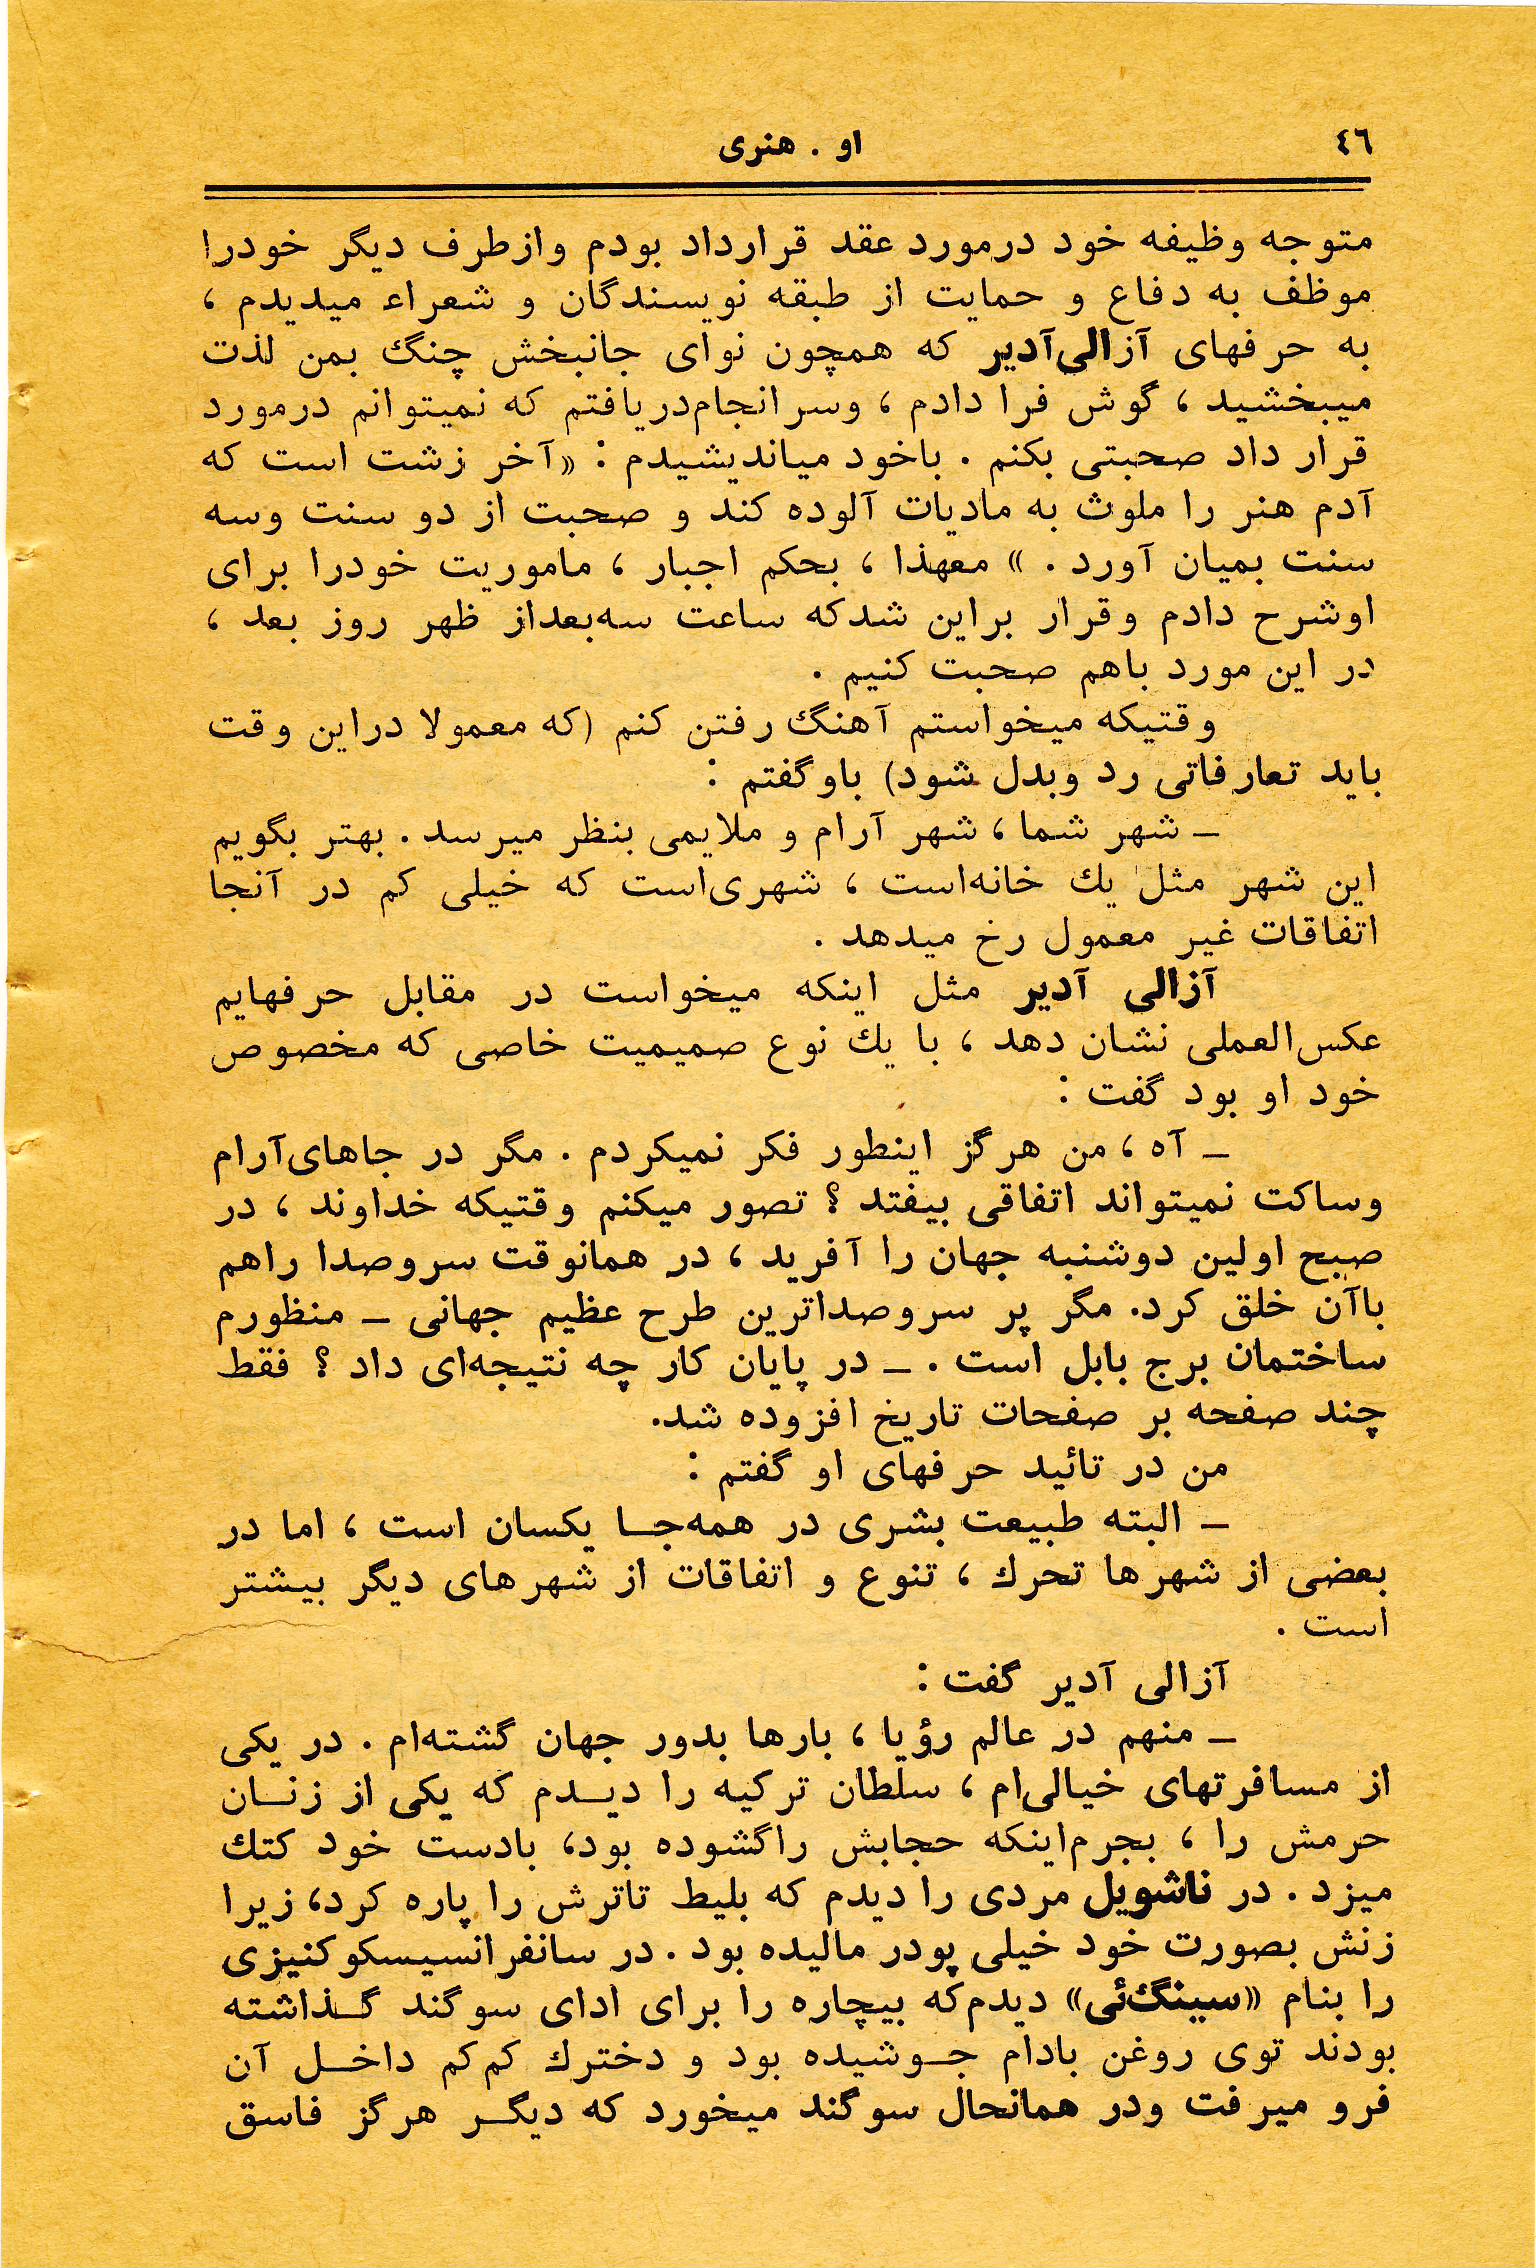 ٤٦
او . هنری
متوجه وظیفه خود درمورد عقد قرارداد بودم وازطرف دیگر خودرا
موظف به دفاع و حمایت از طبقه نویسندگان و شعراء میدیدم ،
به حرفهای آزالی‌آدیر که همچون نوای جانبخش چنگ بمن لذت
میبخشید ، گوش فرا دادم ، وسرانجام‌دریافتم که نمیتوانم درمورد
قرار داد صحبتی بکنم . باخود میاندیشیدم : «آخر زشت است که
آدم هنر را ملوث به مادیات آلوده کند و صحبت از دو سنت وسه
سنت بمیان آورد . » معهذا ، بحکم اجبار ، ماموریت خودرا برای
اوشرح دادم وقرار براین شدکه ساعت سه‌بعداز ظهر روز بعد ،
در این مورد باهم صحبت کنیم .
وقتیکه میخواستم آهنگ رفتن کنم (که معمولا دراین وقت
باید تعارفاتی رد وبدل شود) باوگفتم :
ـ شهر شما ، شهر آرام و ملایمی بنظر میرسد . بهتر بگویم
این شهر مثل یك خانه‌است ، شهری‌است که خیلی کم در آنجا
اتفاقات غیر معمول رخ میدهد .
آزالی آدیر مثل اینکه میخواست در مقابل حرفهایم
عکس‌العملی نشان دهد ، با یك نوع صمیمیت خاصی که مخصوص
خود او بود گفت :
ـ آه ، من هرگز اینطور فکر نمیکردم . مگر در جاهای‌آرام
وساکت نمیتواند اتفاقی بیفتد ؟ تصور میکنم وقتیکه خداوند ، در
صبح اولین دوشنبه جهان را آفرید ، در همانوقت سروصدا راهم
باآن خلق کرد. مگر پر سروصداترین طرح عظیم جهانی ـ منظورم
ساختمان برج بابل است . ـ در پایان کار چه نتیجه‌ای داد ؟ فقط
چند صفحه بر صفحات تاریخ افزوده شد.
من در تائید حرفهای او گفتم :
ـ البته طبیعت بشری در همه‌جـا یکسان است ، اما در
بعضی از شهرها تحرك ، تنوع و اتفاقات از شهرهای دیگر بیشتر
است .
آزالی آدیر گفت :
ـ منهم در عالم رؤیا ، بارها بدور جهان گشته‌ام . در یکی
از مسافرتهای خیالی‌ام ، سلطان ترکیه را دیـدم که یکی از زنـان
حرمش را ، بجرم‌اینکه حجابش راگشوده بود، بادست خود کتك
میزد . در ناشویل مردی را دیدم که بلیط تاترش را پاره کرد، زیرا
زنش بصورت خود خیلی پودر مالیده بود . در سانفرانسیسکو کنیزی
را بنام «سینگ‌ئی» دیدم‌که بیچاره را برای ادای سوگند گـذاشته
بودند توی روغن بادام جـوشیده بود و دخترك کم‌کم داخـل آن
فرو میرفت ودر همانحال سوگند میخورد که دیگـر هرگز فاسق